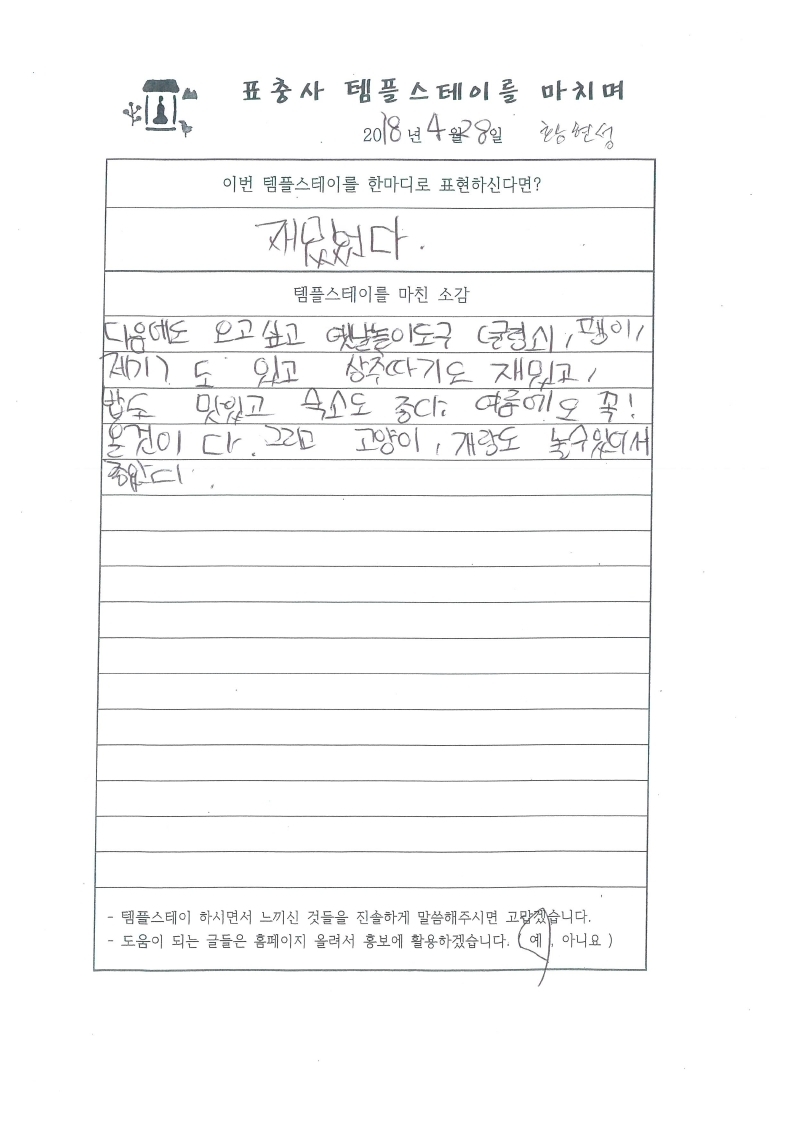 표충사 템플스테이를 마치며
2018년 4월 28일 황현성
이번 템플스테이를 한마디로 표현하신다면?
재밌었다.
템플스테이를 마친 소감
다음에도 오고싶고 옛날놀이도구 (굴렁쇠, 팽이,
제기) 도 있고 상추따기도 재밌고,
밥도 맛있고 숙소도 좋다. 여름에도 꼭!
올것이 다. 그리고 고양이, 개랑도 놀수있어서
좋았다.
- 템플스테이 하시면서 느끼신 것들을 진솔하게 말씀해주시면 고맙겠습니다.
- 도움이 되는 글들은 홈페이지 올려서 홍보에 활용하겠습니다. ( 예 , 아니요 )